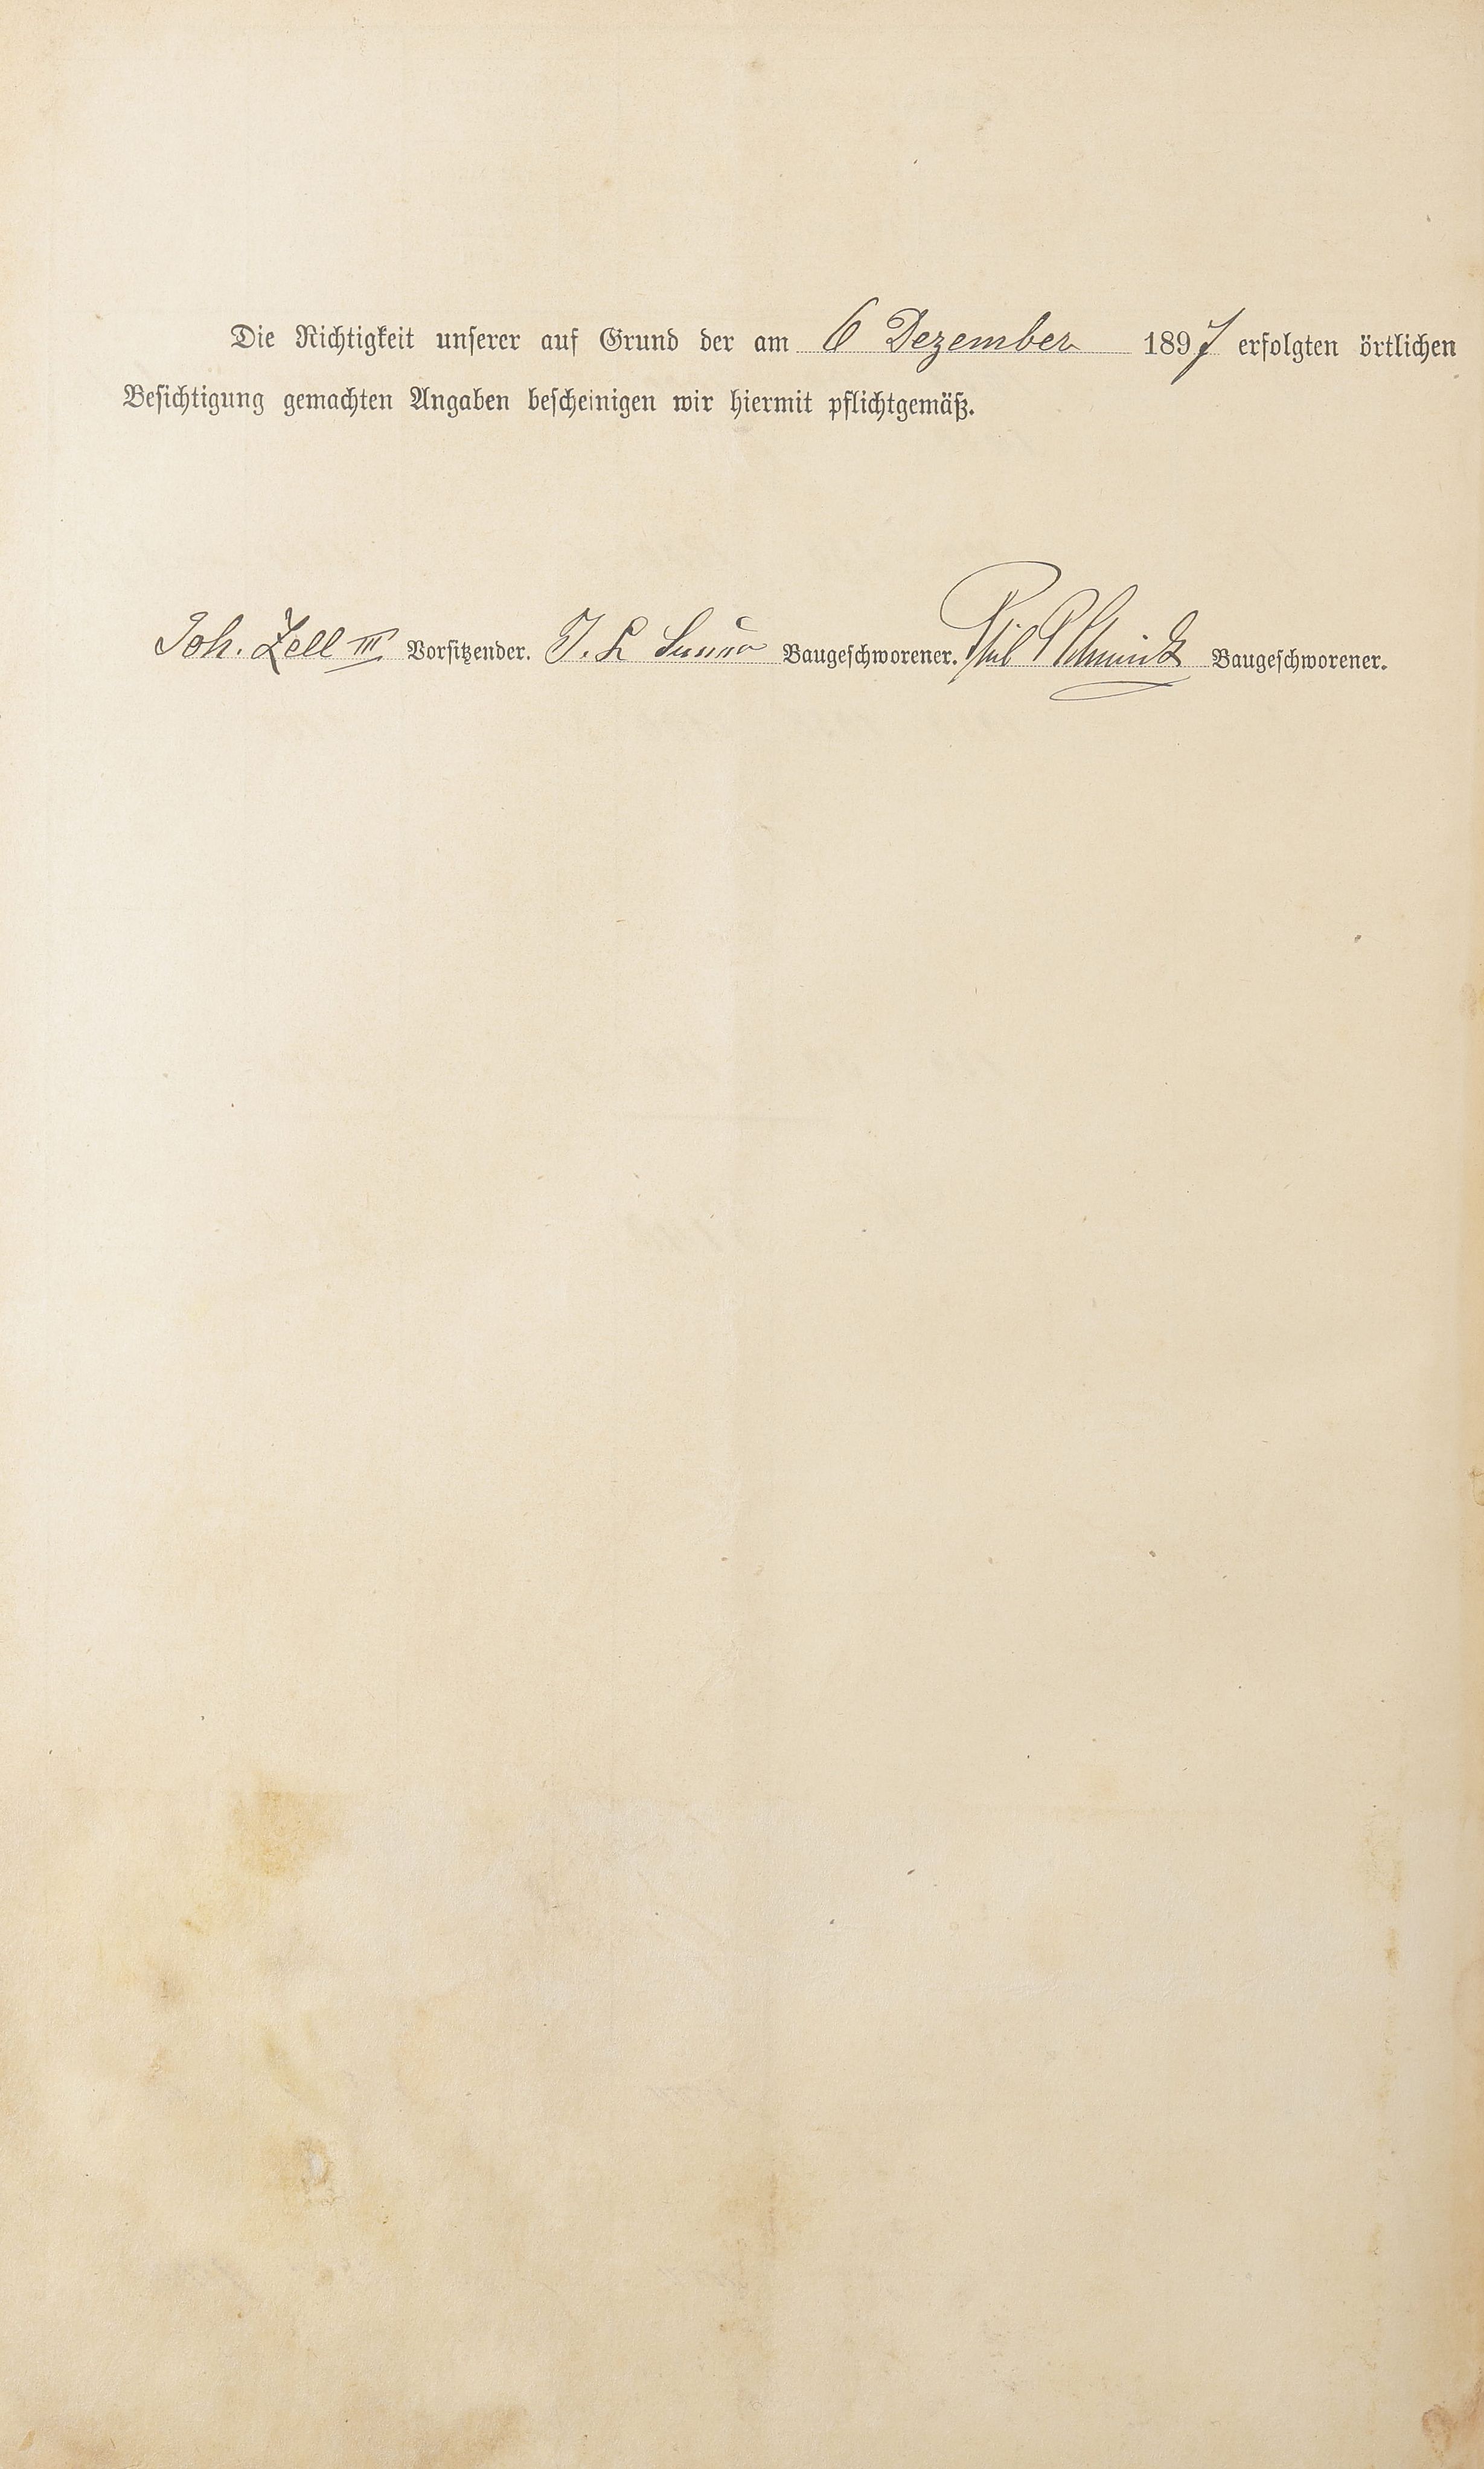 Die Richtigkeit unserer auf Grund der am 6 Dezember 1897 erfolgten örtlichen
Besichtigung gemachten Angaben bescheinigen wir hiermit pflichtgemäß.
Joh. Zell III Vorsitzender. J. L Baugeschworener. Phil Schmidt Baugeschworener.